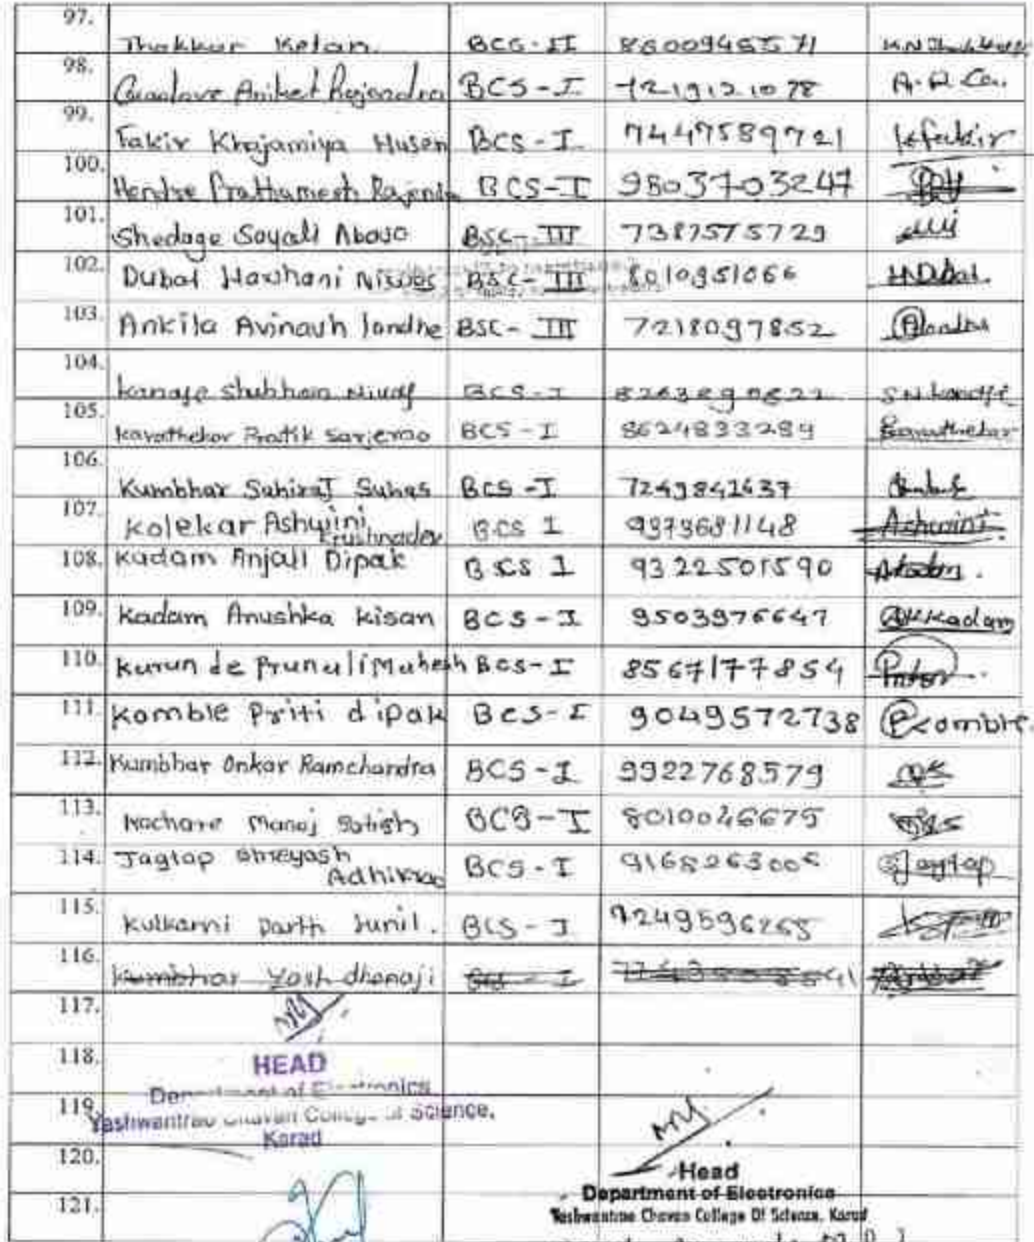 97. Thakkar Ketan BCS-II 8600945571
98. Aniket Rajendra BCS-I
99. Fakir Khajamiya Husen BCS-I 7447589721 kfakir
100. Hendre Prathamesh Rajendra BCS-I 9803703247
101. Shedage Sayali Abaso BSC-III 7387575729
102. Dubal Harshani Niwas BSC-III 8010951066 HNDubal.
103. Ankita Avinash londhe BSC-III 7218097852
104. Shubham BCS-I
105. Karathekar Pratik Sarjerao BCS-I 8624833289
106. Kumbhar Sahiraj Suhas BCS-I 7249842637
107. Kolekar Ashwini Krushnadev BCS I 9373681148 Ashwini
108. Kadam Anjali Dipak BCS I 9322501590 Akadam.
109. Kadam Anushka kisan BCS-I 9503976647 AKKadam
110. Kurunde Prunali Mahesh BCS-I 8567177854
111. Kamble Priti dipak BCS-I 9049572738 Pkamble.
112. Kumbhar Onkar Ramchandra BCS-I 9922768579
113. Nachare Manoj Satish BCS-I 8010046675
114. Jagtap Shreyash Adhikrao BCS-I SJagtap
115. Kulkarni Parth Sunil. BCS-I 7249596265
116. Kumbhar Yash dhanaji
117.
118.
HEAD
Department of Electronics
119.
Yashwantrao Chavan College of Science,
Karad
120.
Head
Department of Electronics
121.
Yashwantrao Chavan College Of Science, Karad